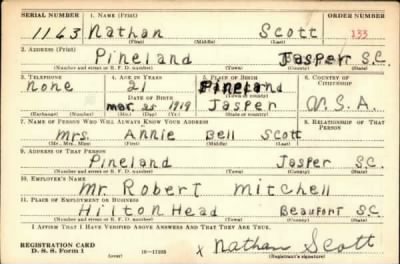 SERIAL NUMBER 1. NAME (Print) ORDER NUMBER
1163 Nathan Scott 133
(First) (Middle) (Last)
2. ADDRESS (Print)
Pineland Jasper S.C.
(Number and street or R. F. D. number) (Town) (County) (State)
3. TELEPHONE 4. AGE IN YEARS 5. PLACE OF BIRTH 6. COUNTRY OF CITIZENSHIP
none 21 Pineland
DATE OF BIRTH (Town or county)
Mar. 25 1919 Jasper U.S.A.
(Exchange) (Number) (Mo.) (Day) (Yr.) (State or country)
7. NAME OF PERSON WHO WILL ALWAYS KNOW YOUR ADDRESS 8. RELATIONSHIP OF THAT PERSON
Mrs. Annie Bell Scott
(Mr., Mrs., Miss) (First) (Middle) (Last)
9. ADDRESS OF THAT PERSON
Pineland Jasper S.C.
(Number and street or R. F. D. number) (Town) (County) (State)
10. EMPLOYER'S NAME
Mr. Robert Mitchell
11. PLACE OF EMPLOYMENT OR BUSINESS
Hilton Head Beaufort S.C.
(Number and street or R. F. D. number) (Town) (County) (State)
I AFFIRM THAT I HAVE VERIFIED ABOVE ANSWERS AND THAT THEY ARE TRUE.
REGISTRATION CARD
D. S. S. Form 1 (over) 16-17105 x Nathan Scott
(Registrant's signature)